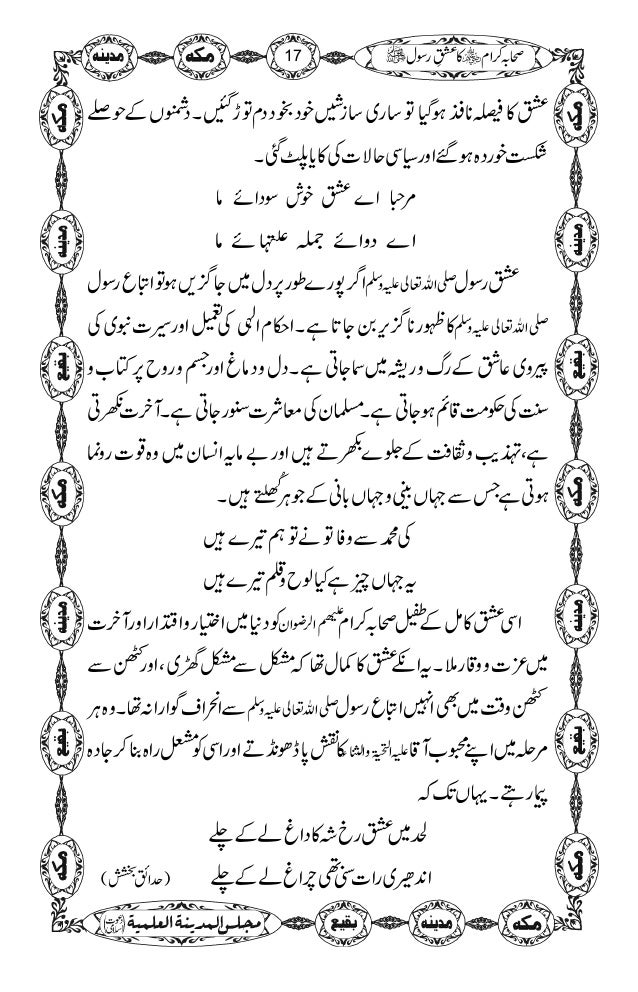 صحابہ کرام ﷡ کا عشق رسول ﷺ
17
مکہ
مدینہ
عشق کا فیصلہ نافذ ہوگیا تو ساری سازشیں خود بخود دم توڑ گئیں۔ دشمنوں کے حوصلے
شکست خوردہ ہوگئے اور سیاسی حالات کی کایا پلٹ گئی۔
مرحبا اے عشق خوش سودائے ما
اے دوائے جملہ علتہائے ما
عشق رسول صلی اللہ تعالی علیہ وسلم اگر پورے طور پر دل میں جاگزیں ہو تو اتباع رسول
صلی اللہ تعالی علیہ وسلم کا ظہور ناگزیر بن جاتا ہے۔ احکام الہی کی تعمیل اور سیرت نبوی کی
پیروی عاشق کے رگ و ریشہ میں سما جاتی ہے۔ دل و دماغ اور جسم و روح پر کتاب و
سنت کی حکومت قائم ہوجاتی ہے۔ مسلمان کی معاشرت سنور جاتی ہے۔ آخرت نکھرتی
ہے، تہذیب و ثقافت کے جلوے بکھرتے ہیں اور بے مایہ انسان میں وہ قوت رونما
ہوتی ہے جس سے جہاں بینی و جہاں بانی کے جوہر کُھلتے ہیں۔
کی محمد سے وفا تو نے تو ہم تیرے ہیں
یہ جہاں چیز ہے کیا لوح و قلم تیرے ہیں
اسی عشق کامل کے طفیل صحابہ کرام علیھم الرضوان کو دنیا میں اختیار و اقتدار اور آخرت
میں عزت و وقار ملا۔ یہ انکے عشق کا کمال تھا کہ مشکل سے مشکل گھڑی، اور کٹھن سے
کٹھن وقت میں بھی انہیں اتباع رسول صلی اللہ تعالی علیہ وسلم سے انحراف گوارا نہ تھا۔ وہ ہر
مرحلہ میں اپنے محبوب آقا علیہ التحیۃ والثناء کا نقش پا ڈھونڈتے اور اسی کو مشعل راہ بنا کر جادہ
پیما رہتے۔ یہاں تک کہ
لحد میں عشق رخ شہ کا داغ لے کے چلے
اندھیری رات سنی تھی چراغ لے کے چلے (حدائق بخشش)
مکہ
مدینہ
بقیع
مکہ
مدینہ
بقیع
مکہ
مکہ
مدینہ
بقیع
مکہ
مدینہ
بقیع
مکہ
مکہ
مدینہ
بقیع
مجلس المدینۃ العلمیۃ